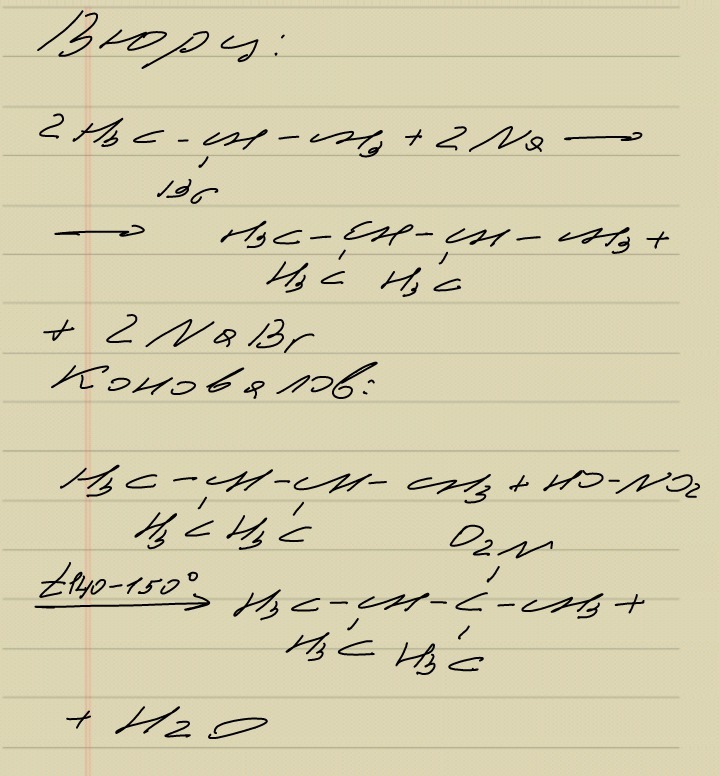 Вюрц:
2 H₃C - CH - CH₃ + 2 Na ⟶
Br
⟶ H₃C - CH - CH - CH₃ +
H₃C H₃C
+ 2 NaBr
Коновалов:
H₃C - CH - CH - CH₃ + HO-NO₂
H₃C H₃C
O₂N
t 140-150°
H₃C - CH - C - CH₃ +
H₃C H₃C
+ H₂O